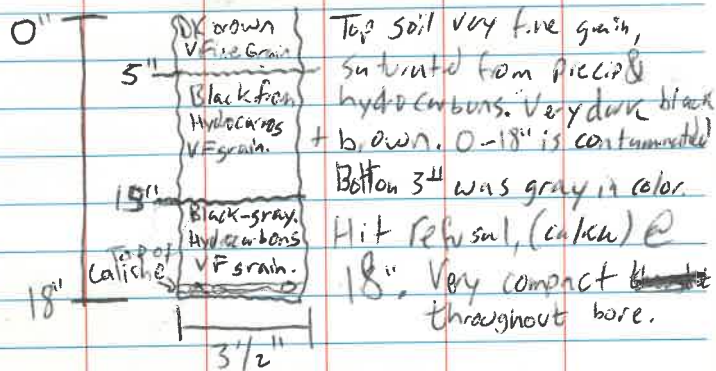 0"
DK brown
VFine Grain
5"
Black from
Hydrocarbs
VF grain.
15"
Black-gray.
Hydrocarbons
VF grain.
Top of
Caliche
18"
3 1/2"
Top soil very fine grain,
saturated from precip &
hydrocarbons. Very dark black
+ brown. 0-18" is contaminated
Bottom 3" was gray in color.
Hit refusal, @
18". Very compact
throughout bore.